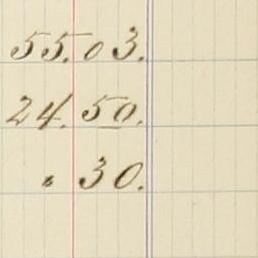 55.03.
24.50.
" 30.